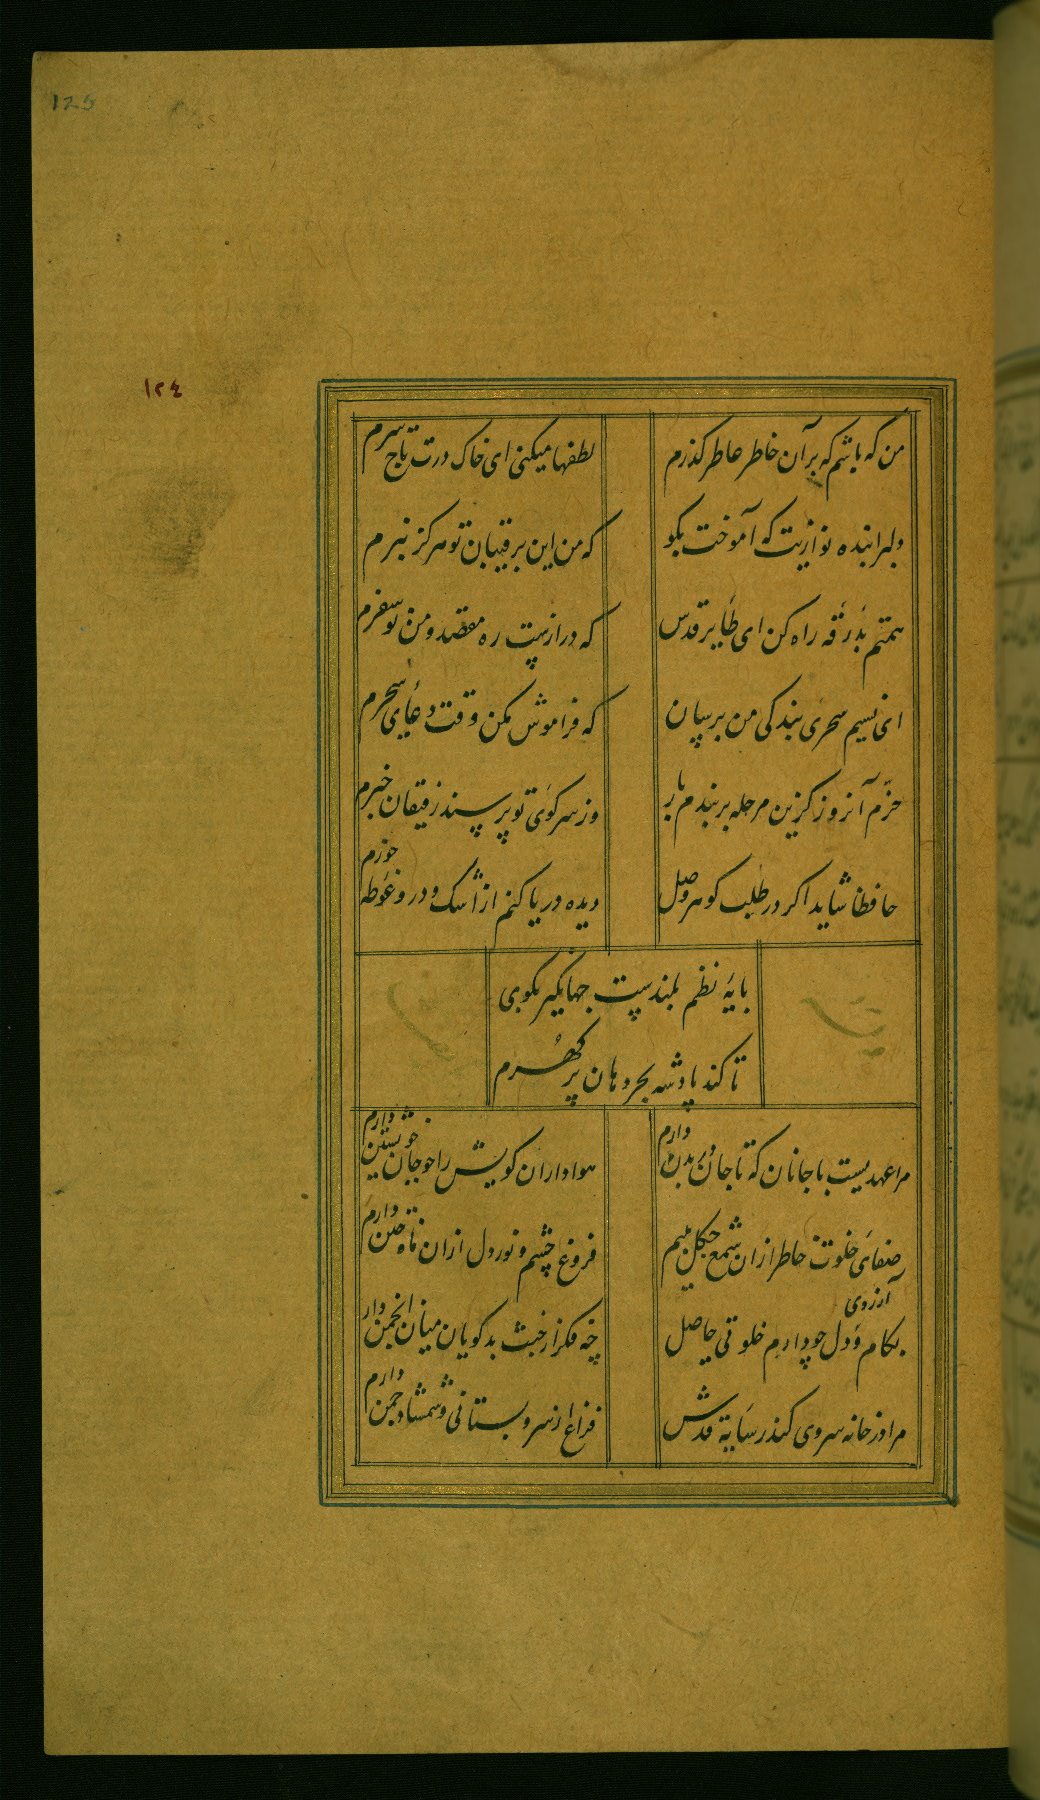 125
١٢٤
من که باشم که بر آن خاطر عاطر گذرم
لطفها میکنی ای خاک درت تاج سرم
دلبرا بنده نوازیت که آموخت بگو
که من این بر رقیبان تو هرگز نبرم
همتم بدرقه راه کن ای طایر قدس
که درازست ره مقصد و من نو سفرم
ای نسیم سحری بندگی من برسان
که فراموش مکن وقت دعای سحرم
خرم آنروز کزین مرحله بربندم بار
وز سر کوی تو پرسند رفیقان خبرم
حافظا شاید اگر در طلب گوهر وصل
دیده دریا کنم از اشک و درو غوطه خورم
پایه نظم بلندست جهانگیر بگوی
تا کند پادشه بحر دهان پر گهرم
مرا عهدیست با جانان که تا جان در بدن دارم
هواداران کویش را چو جان خویشتن دارم
صفای خلوت خاطر ازان شمع چگل بینم
فروغ چشم و نور دل ازان ماه ختن دارم
بکام و آرزوی دل چو دارم خلوتی حاصل
چه فکر از خبث بدگویان میان انجمن دارم
مرا در خانه سروی کندر سایه قدش
فراغ از سرو بستانی و شمشاد چمن دارم